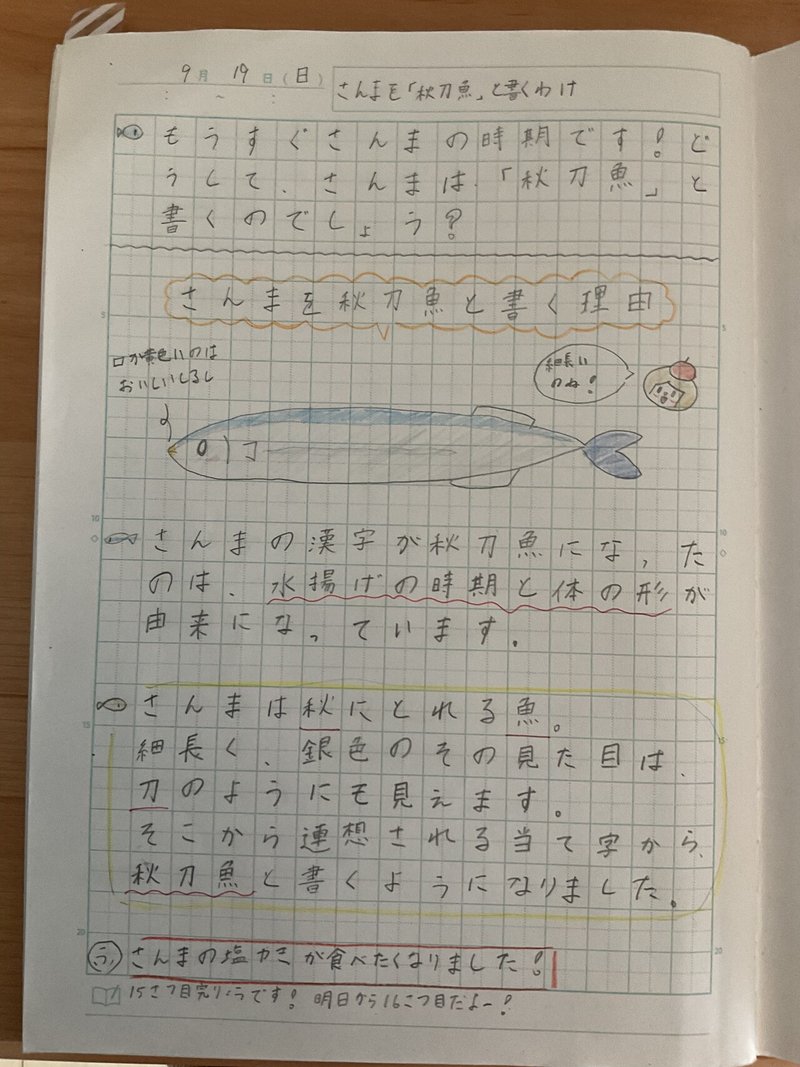 9月 19日(日)
さんまを「秋刀魚」と書くわけ
もうすぐさんまの時期です!ど
うして、さんまは「秋刀魚」と
書くのでしょう?
さんまを秋刀魚と書く理由
口が黄色いのは
おいしいしるし
細長い
のね!
さんまの漢字が秋刀魚になった
のは、水揚げの時期と体の形が
由来になっています。
さんまは秋にとれる魚。
細長く、銀色のその見た目は、
刀のようにも見えます。
そこから連想される当て字から、
秋刀魚と書くようになりました。
さんまの塩やきが食べたくなりました!
15さつ目完りょうです! 明日から16さつ目だよー!
5
5
10
10
15
15
20
20